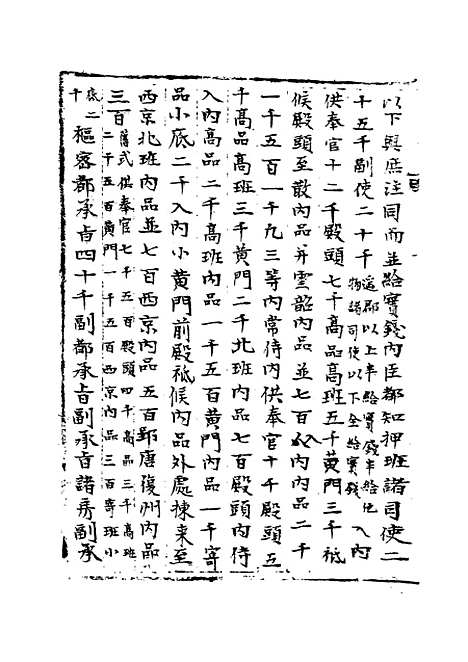 以下與庶注同而並給實錢內臣都知押班諸司使二
十五千副使二十千遙郡以上半給實錢半給他物諸司使以下全給實錢入內
供奉官十二千殿頭七千高品高班五千黃門三千祗
候殿頭至散內品并雲韶內品並七百入內內品二千
一千五百一千凡三等內常侍內供奉官十千殿頭五
千高品高班三千黃門二千北班內品七百殿頭內侍
入內高品二千高班內品一千五百黃門內品一千寄
品小底二千入內小黃門前殿祗候內品外處揀來至
西京北班內品並七百西京內品五百郢唐復州內品
三百舊式供奉官七千五百殿頭四千高品三千高班二千五百黃門一千五百西京內品三百寄班小
底二千樞密都承旨四十千副都承旨副承旨諸房副承